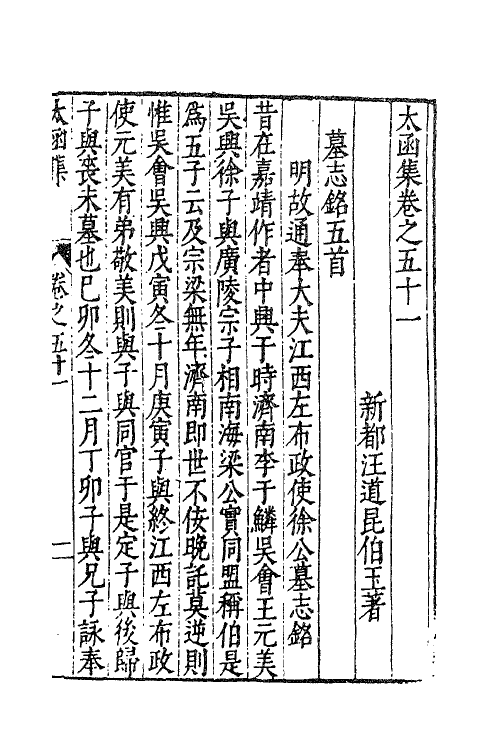 太函集卷之五十一
新都汪道昆伯玉著
墓志銘五首
明故通奉大夫江西左布政使徐公墓志銘
昔在嘉靖作者中興于時濟南李于鱗吳會王元美
吳興徐子與廣陵宗子相南海梁公實同盟稱伯是
爲五子云及宗梁無年濟南即世不佞晚託莫逆則
惟吳會吳興戊寅冬十月庚寅子與終江西左布政
使元美有弟敬美則與子與同官于是定子與後歸
子與喪未墓也己卯冬十二月丁卯子與兄子詠奉
太函集 卷之五十一 一